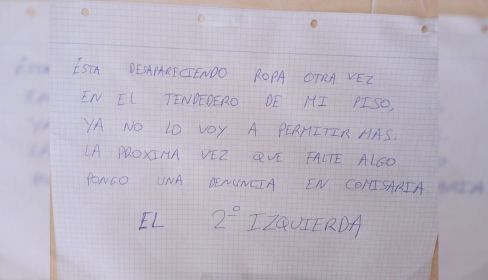 ÉSTA DESAPARECIENDO ROPA OTRA VEZ
EN EL TENDEDERO DE MI PISO,
YA NO LO VOY A PERMITIR MAS.
LA PROXIMA VEZ QUE FALTE ALGO
PONGO UNA DENUNCIA EN COMISARIA
EL 2º IZQUIERDA